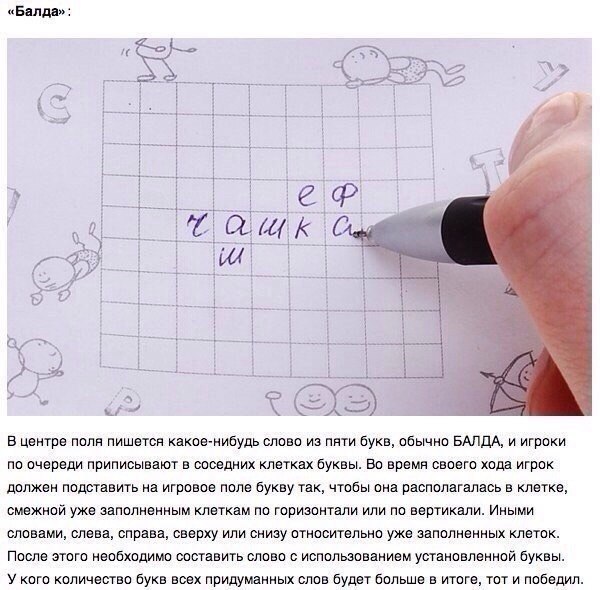 «Балда»:
С
У
Т
е ф
чашка
ш
Р
В центре поля пишется какое-нибудь слово из пяти букв, обычно БАЛДА, и игроки
по очереди приписывают в соседних клетках буквы. Во время своего хода игрок
должен подставить на игровое поле букву так, чтобы она располагалась в клетке,
смежной уже заполненным клеткам по горизонтали или по вертикали. Иными
словами, слева, справа, сверху или снизу относительно уже заполненных клеток.
После этого необходимо составить слово с использованием установленной буквы.
У кого количество букв всех придуманных слов будет больше в итоге, тот и победил.